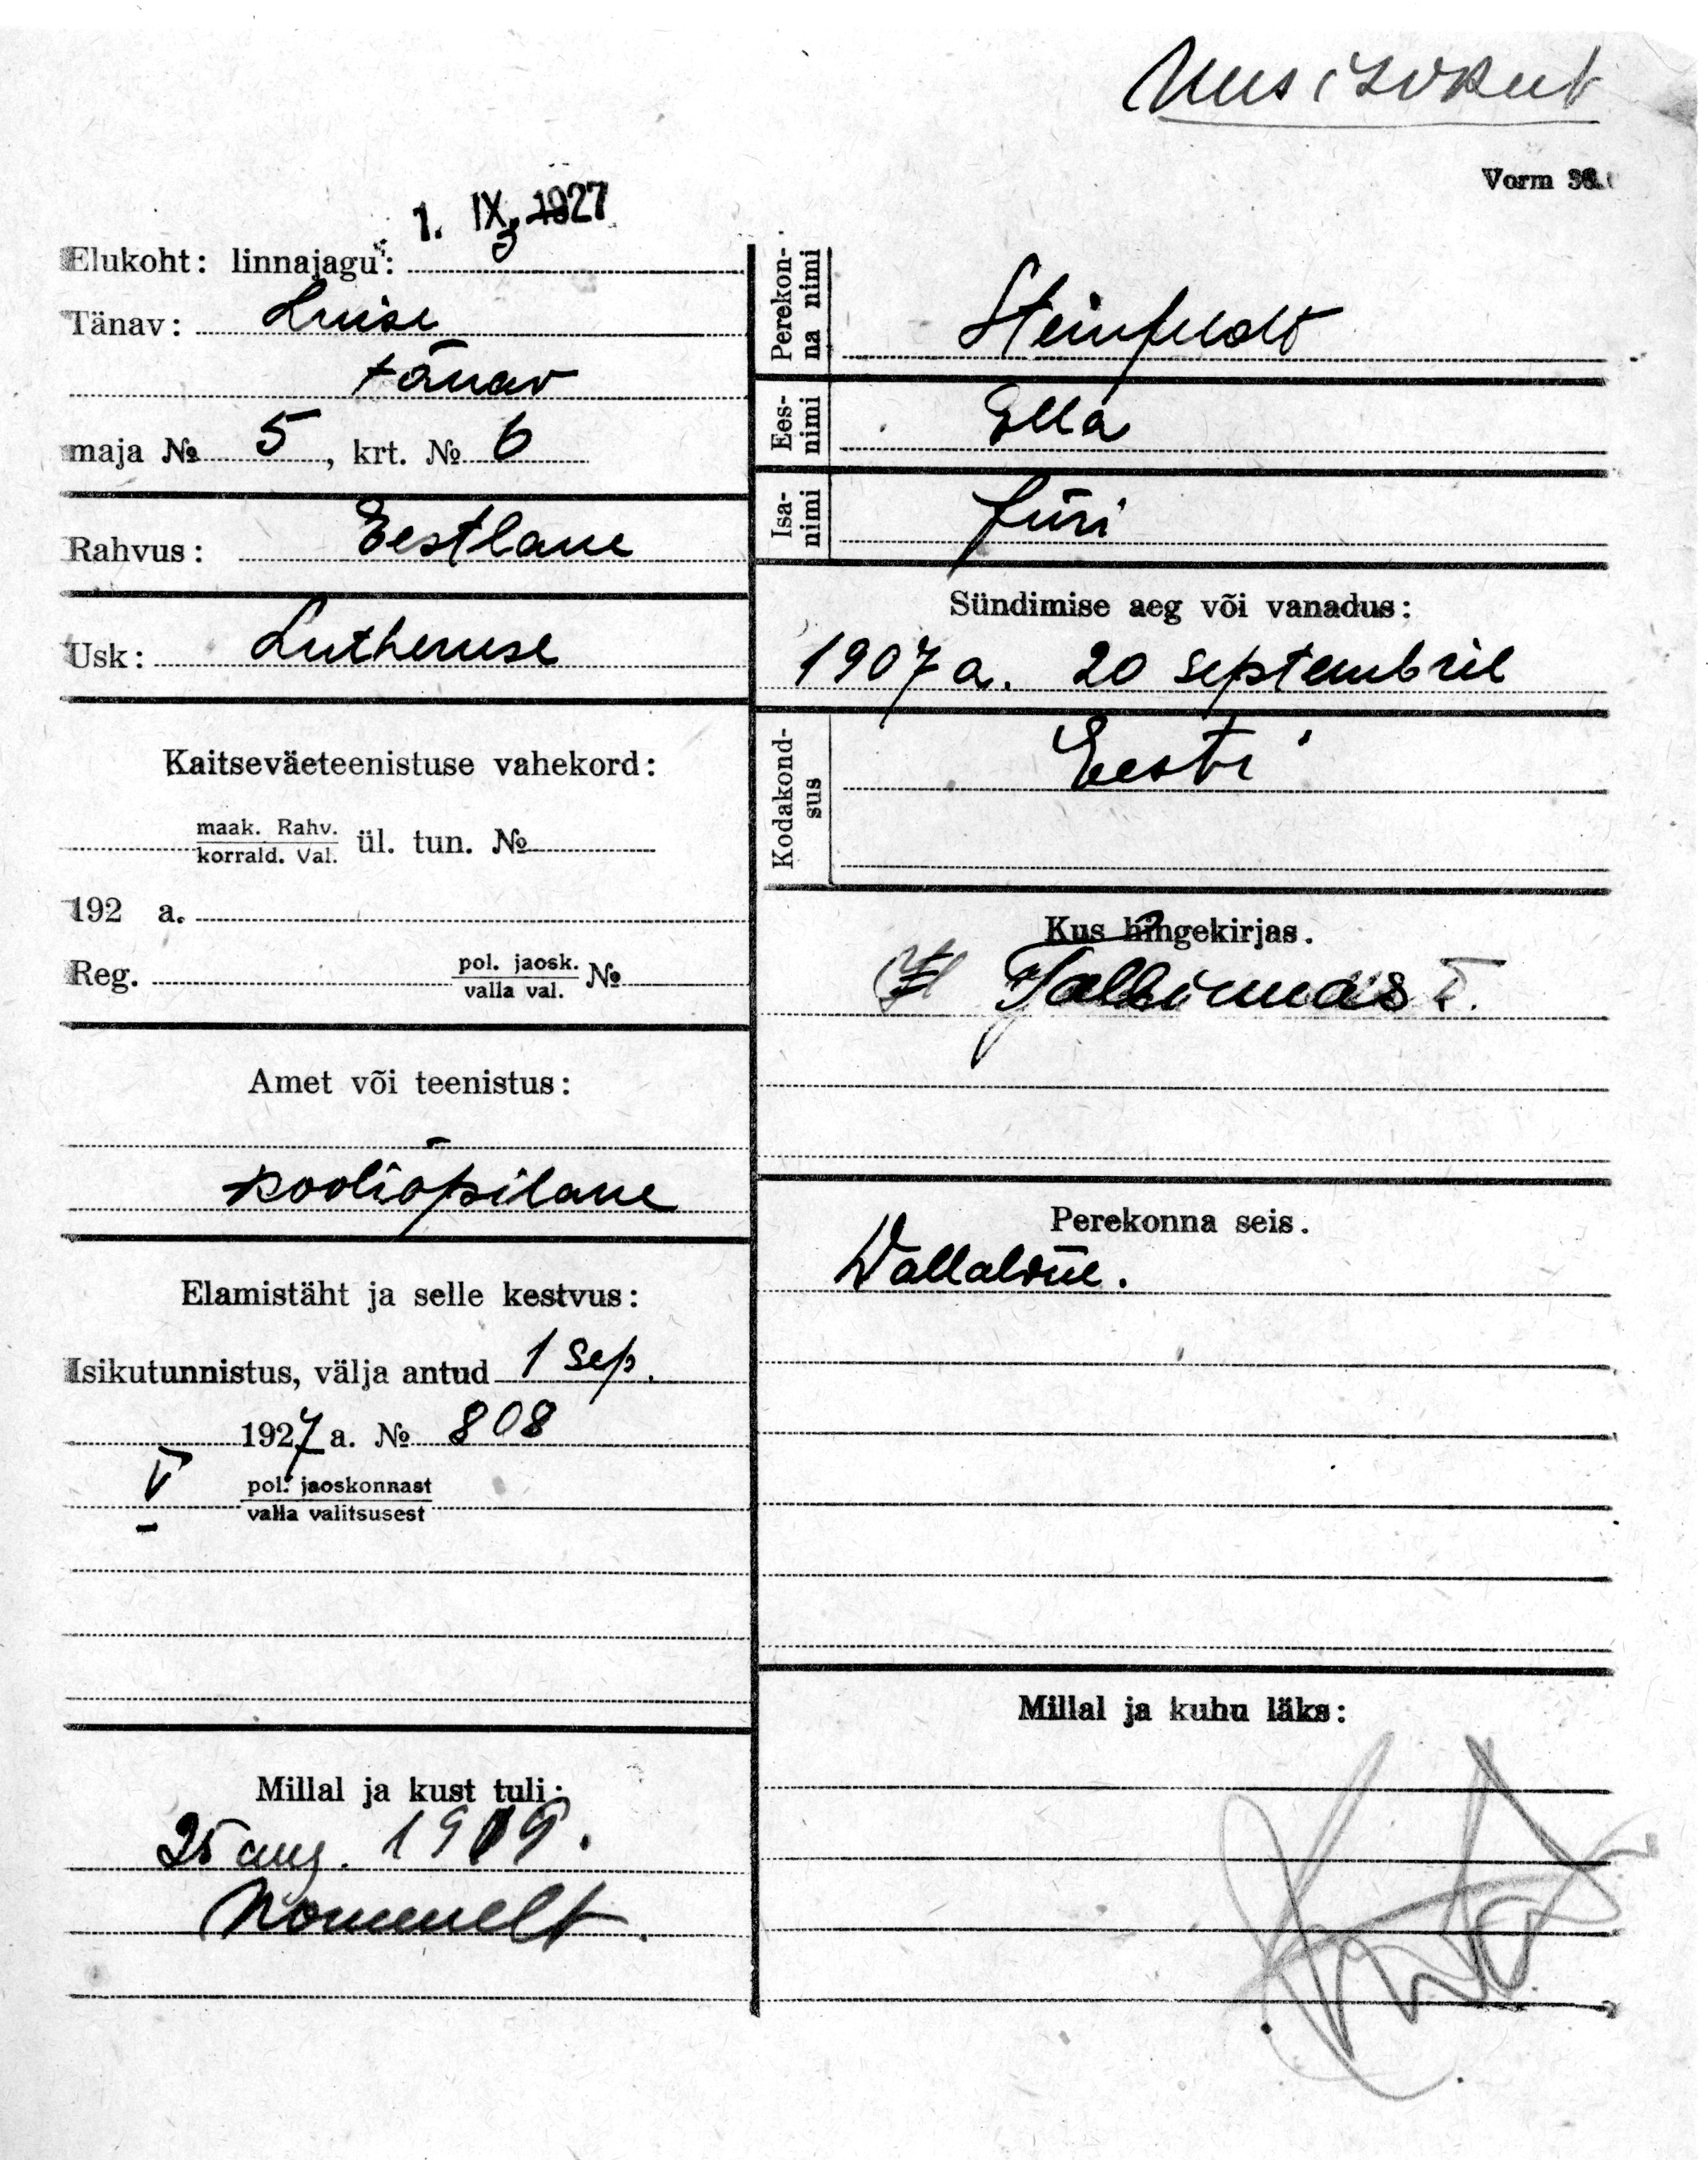 Uus isikut
Vorm 36.
1. IX 1927
Elukoht: linnajagu: 5
Tänav: Luise
tänav
maja № 5, krt. № 6
Rahvus: Eestlane
Usk: Lutheruse
Kaitseväeteenistuse vahekord:
maak. Rahv.
korrald. Val. ül. tun. №
192 a.
Reg. pol. jaosk. №
valla val.
Amet või teenistus:
kooliõpilane
Elamistäht ja selle kestvus:
Isikutunnistus, välja antud 1 sep.
1927 a. № 808
V pol. jaoskonnast
valla valitsusest
Millal ja kust tuli:
25 aug. 1919.
Nõmmelt.
Perekonna nimi
Steinfeldt
Eesnimi
Ella
Isanimi
Jüri
Sündimise aeg või vanadus:
1907 a. 20 septembril
Kodakondsus
Eesti
Kus hingekirjas.
Tallinnas
Perekonna seis.
Wallaline.
Millal ja kuhu läks: